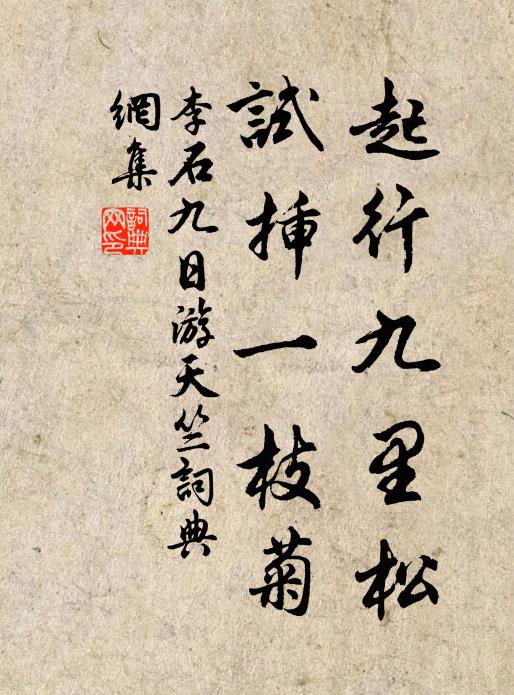 起行九里松
試插一枝菊
李石九日游天竺詞典
網集
詞典
网印